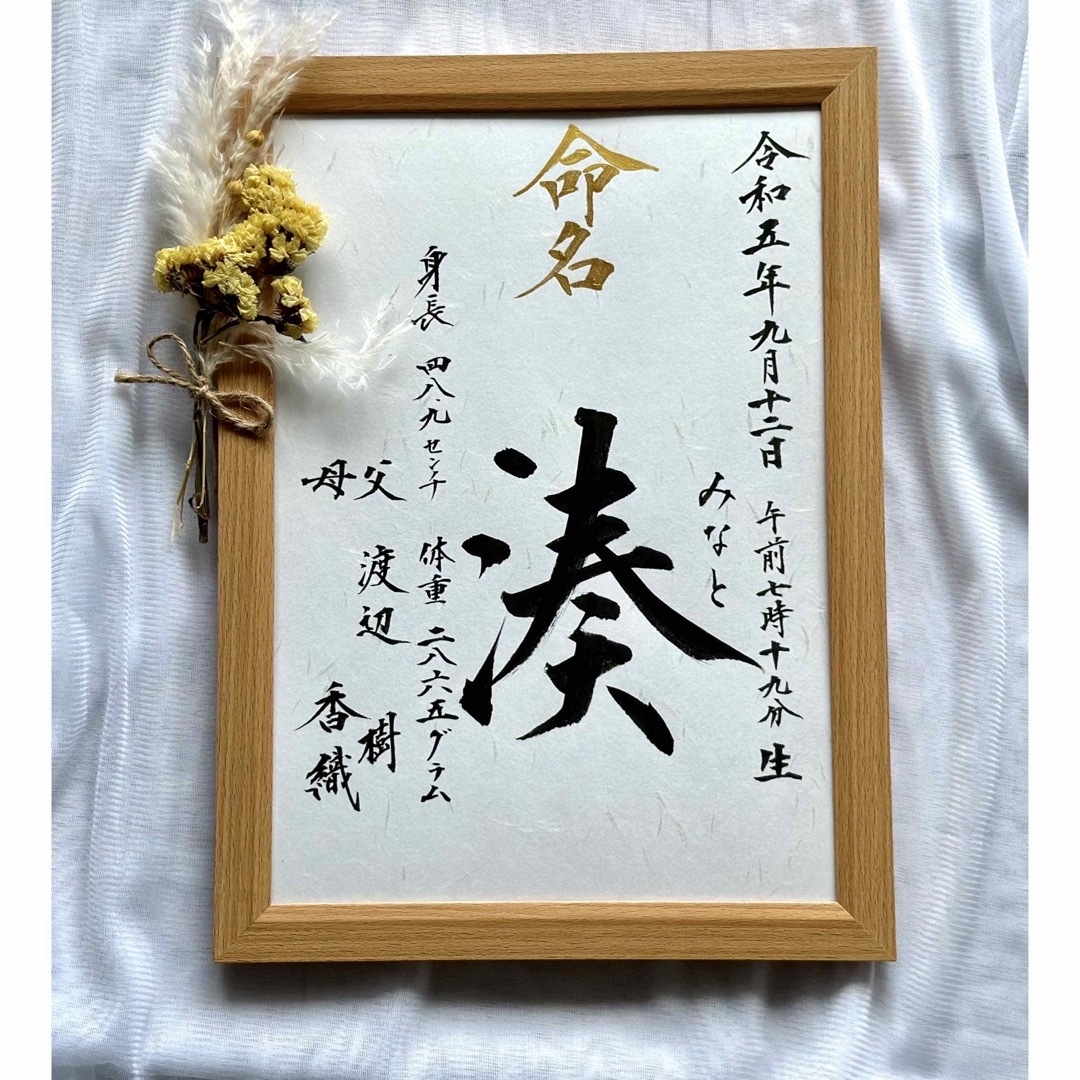 命名
令和五年九月十二日
午前七時十九分 生
みなと
湊
身長 四八.九センチ 体重 二八六五グラム
父 渡辺 樹
母 香織